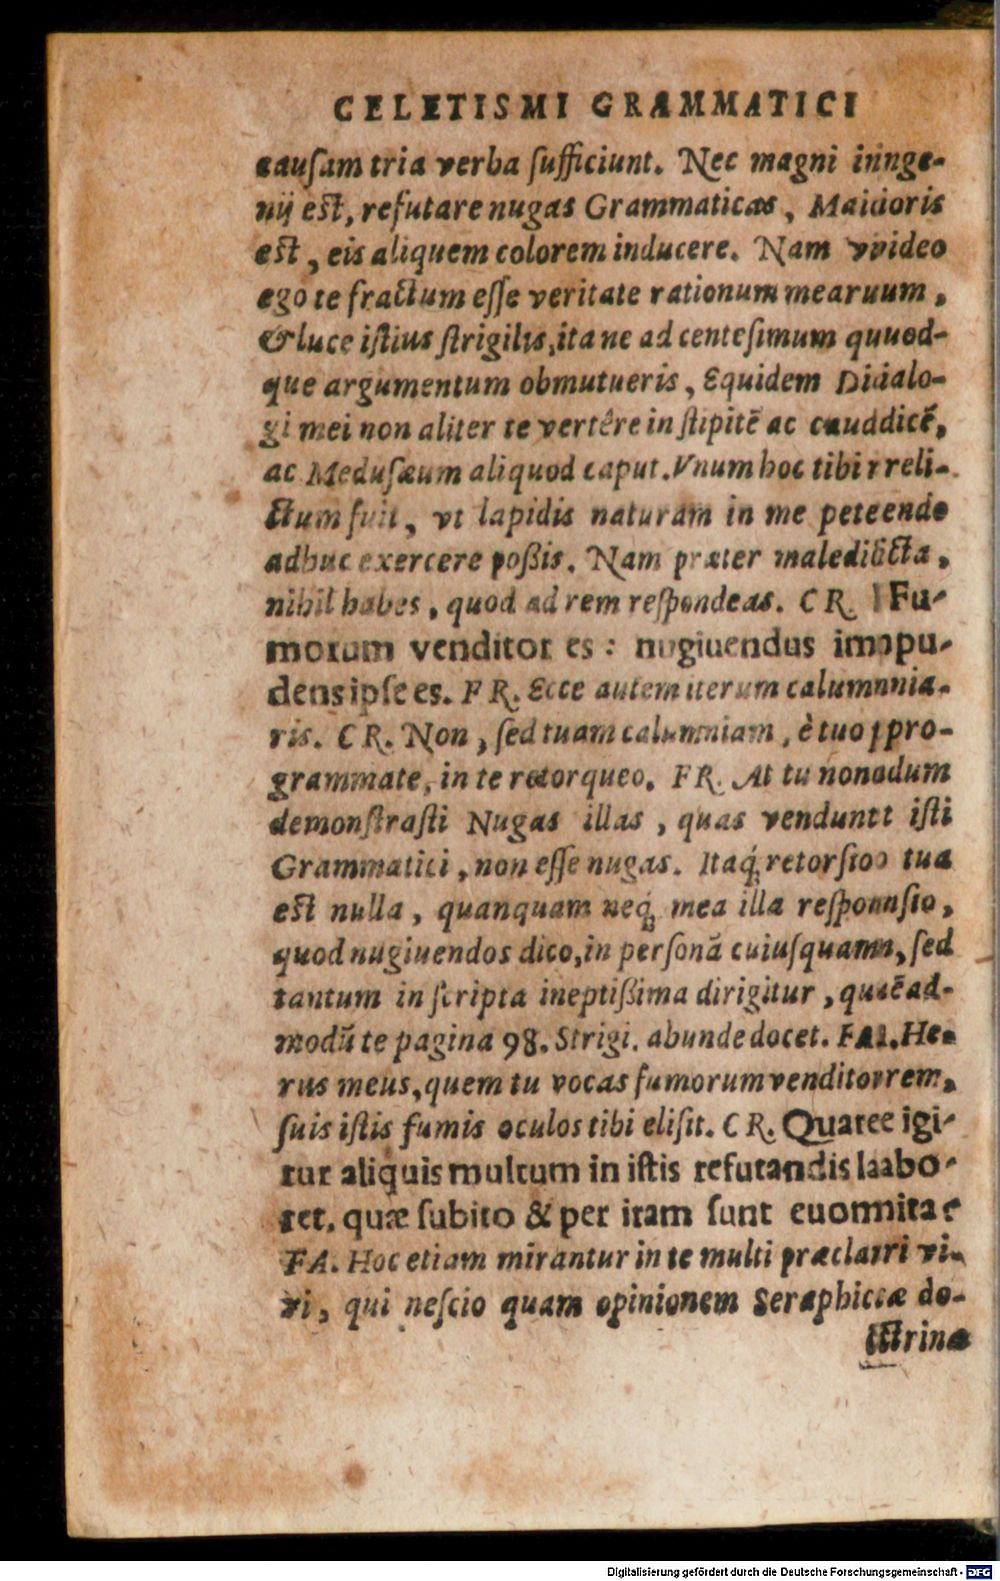 CELETISMI GRAMMATICI
cauſam tria verba ſufficiunt. Nec magni inge-
nij eſt, refutare nugas Grammaticas, Maioris
eſt, eis aliquem colorem inducere. Nam video
ego te fractum eſſe veritate rationum mearum,
& luce iſtius ſtrigilis, ita ne ad centeſimum quod-
que argumentum obmutueris, Equidem Dialo-
gi mei non aliter te vertêre in ſtipitē ac caudicē,
ac Meduſæum aliquod caput. Vnum hoc tibi reli-
ctum fuit, vt lapidis naturam in me petendo
adhuc exercere poßis. Nam præter maledicta,
nihil habes, quod ad rem reſpondeas. CR. Fu-
morum venditor es: nugiuendus impu-
dens ipſe es. FR. Ecce autem iterum calumnia-
ris. CR. Non, ſed tuam calumniam, è tuo pro-
grammate, in te retorqueo. FR. At tu nondum
demonſtraſti Nugas illas, quas vendunt iſti
Grammatici, non eſſe nugas. Itaq́; retorſio tua
eſt nulla, quanquam neq́; mea illa reſponſio,
quod nugiuendos dico, in perſonā cuiuſquam, ſed
tantum in ſcripta ineptißima dirigitur, quēad-
modū te pagina 98. Strigi. abunde docet. FA. He-
rus meus, quem tu vocas fumorum venditorem,
ſuis iſtis fumis oculos tibi eliſit. CR. Quare igi-
tur aliquis multum in iſtis refutandis labo-
ret, quæ ſubito & per iram ſunt euomita?
FA. Hoc etiam mirantur in te multi præclari vi-
ri, qui neſcio quam opinionem Seraphicæ do-
ctrinæ
Digitalisierung gefördert durch die Deutsche Forschungsgemeinschaft - DFG